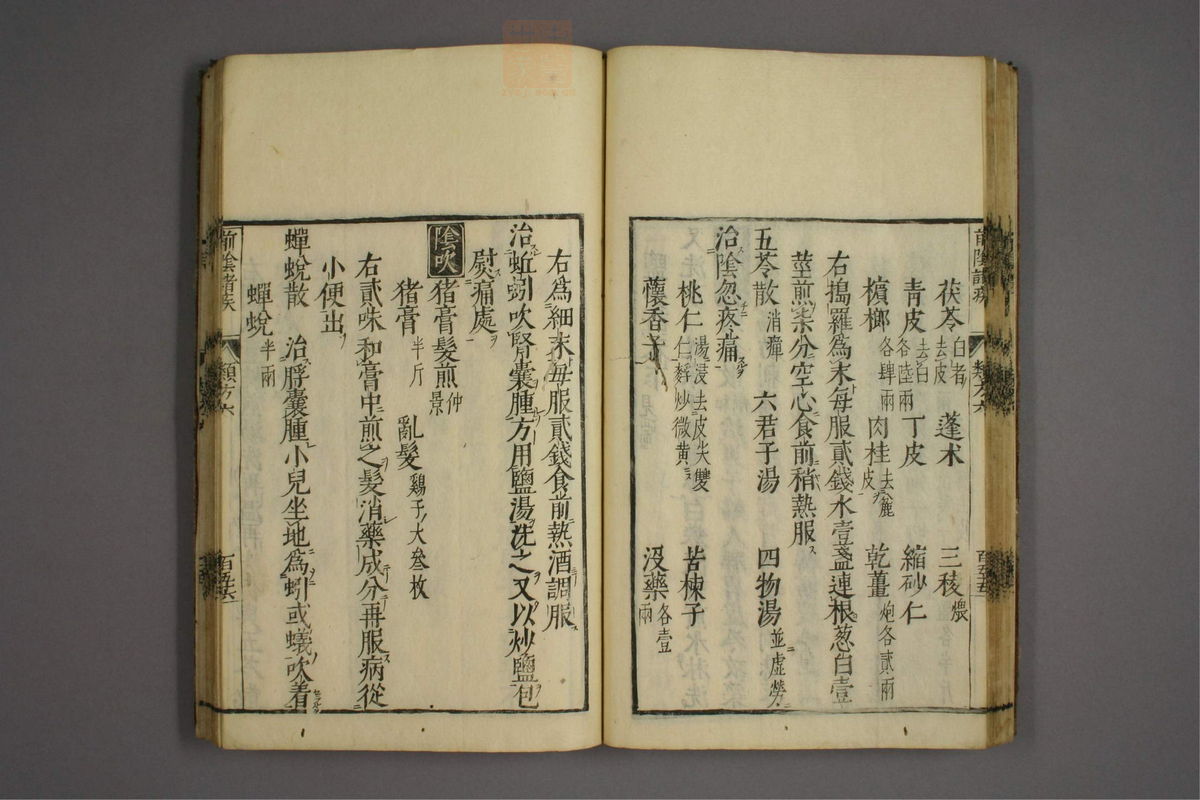 前陰諸疾 類方六 百五十五
茯苓白者去皮 蓬朮 三稜煨
青皮去白各陸兩 丁皮 縮砂仁
檳榔各肆兩 肉桂去麤皮 乾薑炮各貳兩
右搗羅爲末每服貳錢水壹盞連根葱白壹
莖煎柒分空心食前稍熱服
五苓散消癉 六君子湯 四物湯並虛勞
治陰忽疼痛
桃仁湯浸去皮尖雙仁麩炒微黄 苦棟子
蘹香子 沒藥各壹兩
右爲細末每服貳錢食前熱酒調服
治蚯蚓吹腎囊腫方用鹽湯洗之又以炒鹽包
熨痛處
陰吹 猪膏髮煎仲景
猪膏半斤 亂髮鷄子大叁枚
右貳味和膏中煎之髮消藥成分再服病從
小便出
蟬蛻散 治脬囊腫小兒坐地爲蚓或蟻吹着
蟬蛻半兩
前陰諸疾 類方六 百五十六